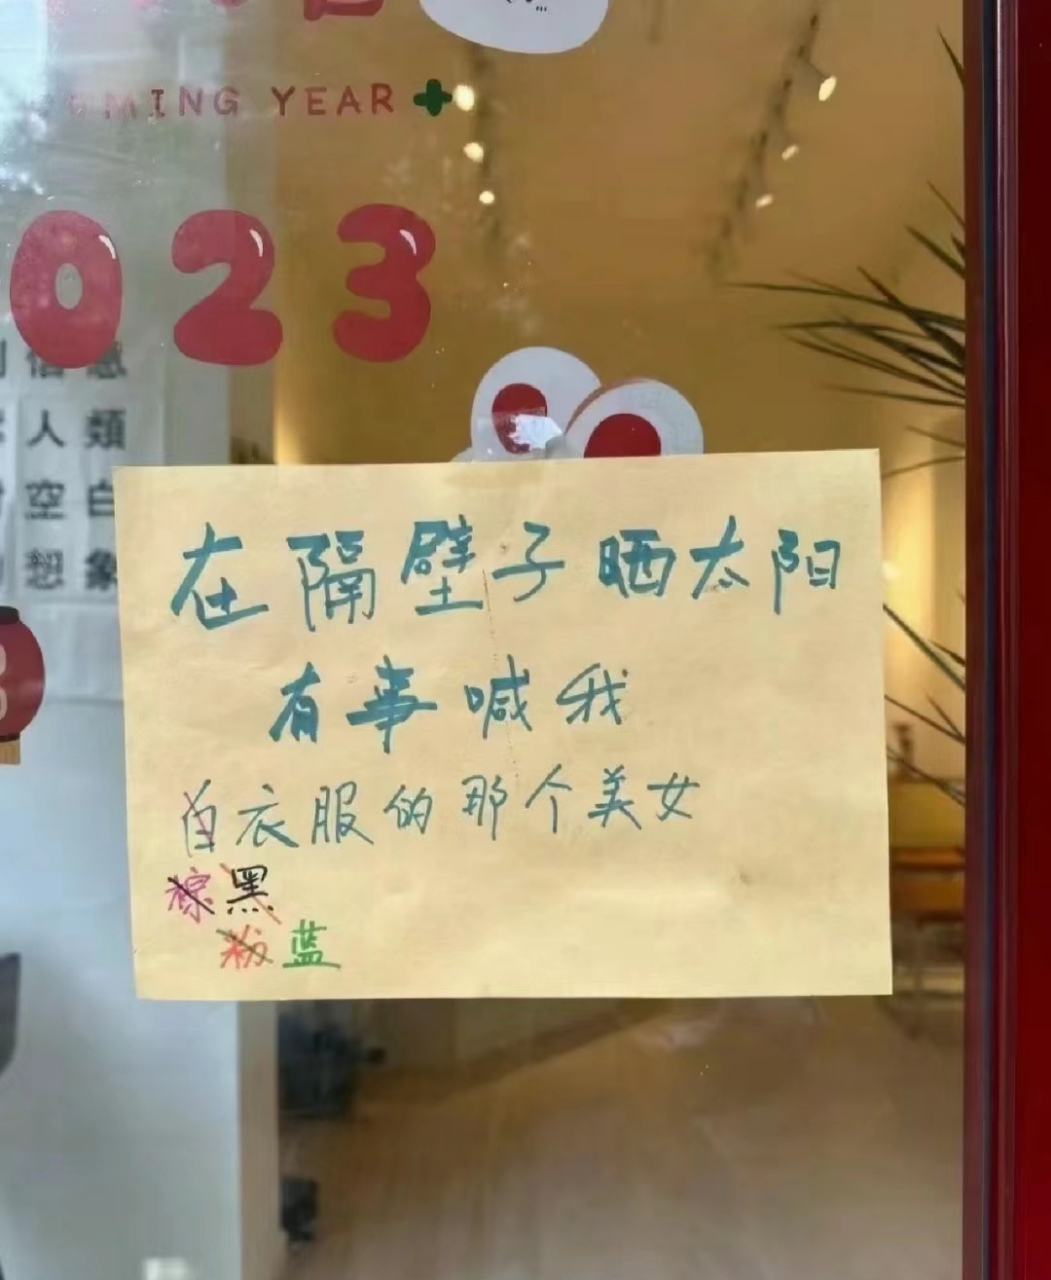 MING YEAR
023
人類
空白
想象
在隔壁子晒太阳
有事喊我
白衣服的那个美女
棕黑
粉蓝